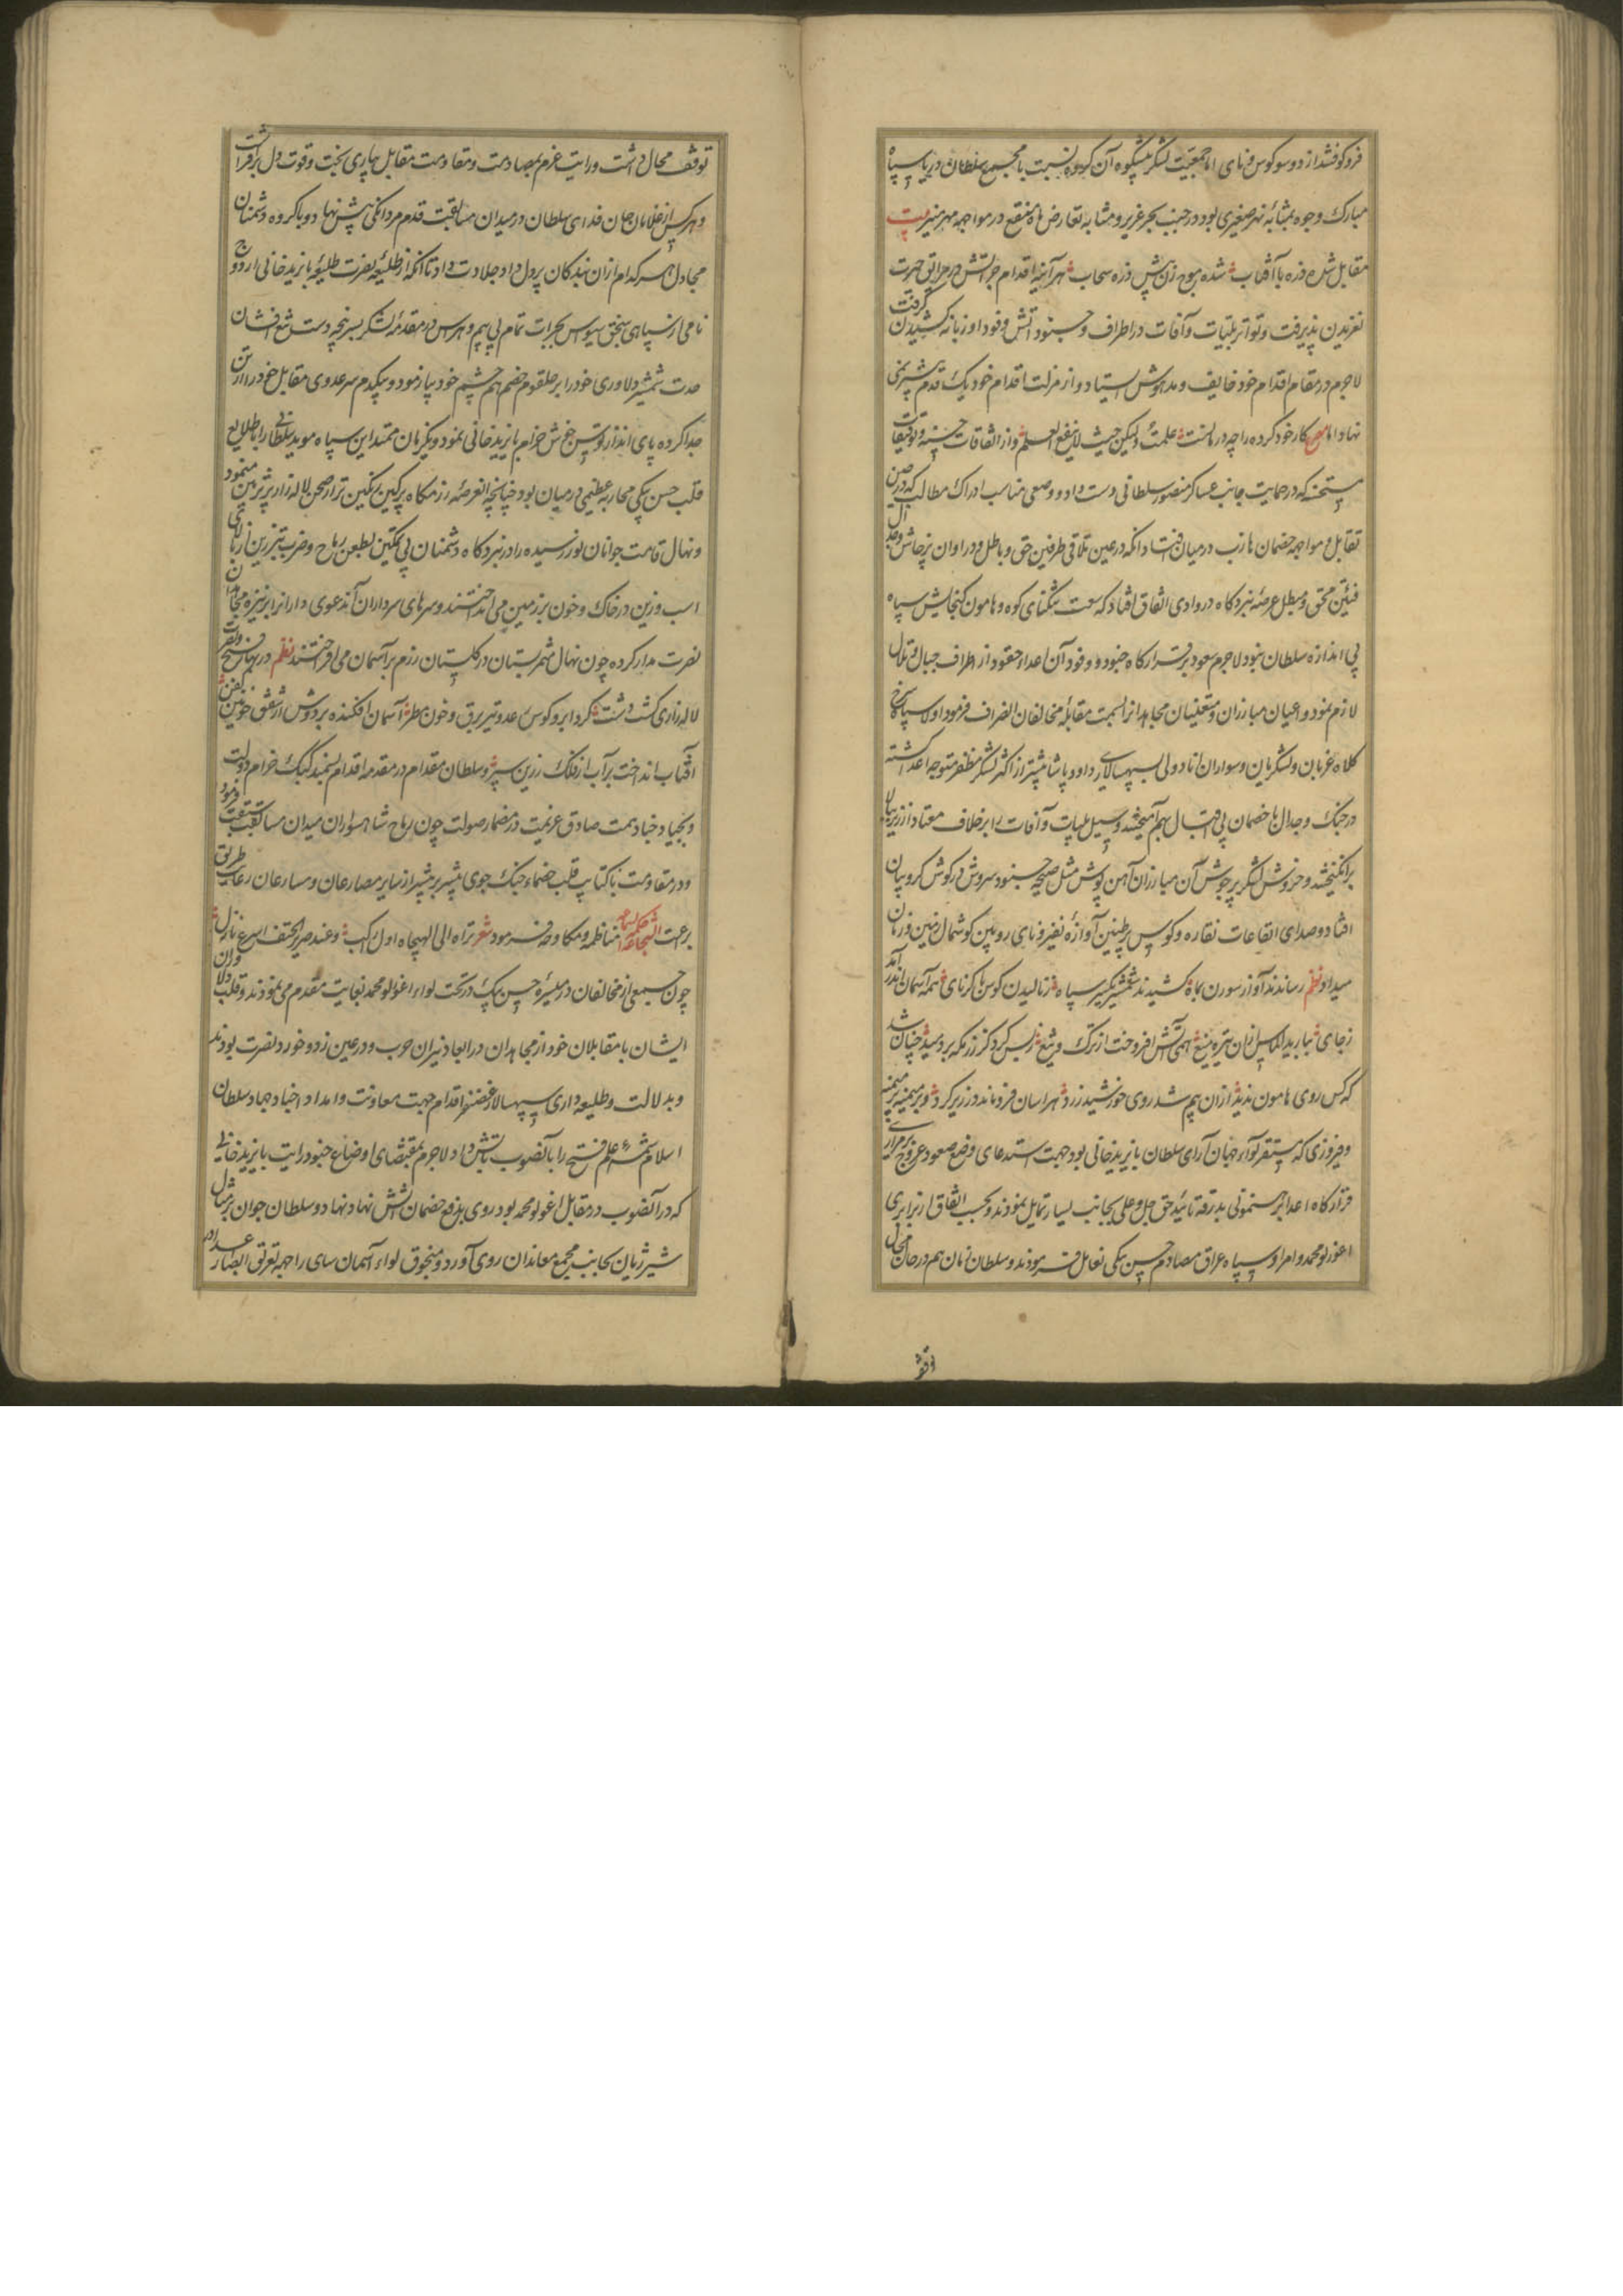 فرو کوفتند از دو سو کوس و نای اما جمعیت لشکر آن کروه نسبت با مجمع سلطان دریا سپاه
مبارک وجوه بمثابه نهر صغیری بود در جنب بحر غزیر و مشابه تعارض ماه مقنع در مواجهه مهر منیر بیت
مقابل شده ذره با آفتاب شده موج زن پیش ذره سحاب هر آینه اقدام جراتش در مزالق حیرت
لغزیدن پذیرفت و تواتر بلیات و آفات در اطراف و جنود آتش وقود او زبانه کشیدن گرفت
لاجرم در مقام اقدام خود خایف و مدهوش استاد و از منزلت اقدام خود یک قدم پیشتر نمی
نهاد اما مصرع کار خود کرده را چه درمانست علمت ولیکن حیث لا ینفع العلم و از اتفاقات حسنه و توفیقات
مستحسنه که در حمایت جانب عساکر منصور سلطانی دست داد و وضعی مناسب ادراک مطالب که در حین
تقابل و مواجهه خصمان در میان افتاد آنکه در عین تلاقی طرفین حق و باطل و در اوان پرخاش و جدال
فئتین محق و مبطل عرصه نبردکاه در وادی اتفاق افتاد که سعت تنکنای کوه و هامون کنجایش سپاه
بی اندازه سلطان نبود لاجرم صعود بر قرارکاه جنود و وفود آن اعدا حقود از اطراف جبال و تلال
لازم نمود و اعیان مبارزان و متعینان مجاهدانرا بسمت مقابله مخالفان انصراف فرمود اولا سپاه سرخ
کلاه عزبان و لشکریان و سواران اناد ولی بسپهسالاری داود پاشا پیشتر از اکثر لشکر مظفر متوجه اعدا کشته
در جنک و جدال با خصمان بی اقبال بهم آمیختند و سیل بلیات و آفات را بر خلاف معتاد از زیر ببالا
برانکیختند و خروش لشکر پر جوش آن مبارزان آهن پوش مثل صیحه جنود سروش در کوش کروبیان
افتاد و صدای ایقاعات نقاره و کوس پر طنین آوازه نفیر و نای رویین کوشمال زمین و زمان
میداد نظم رساندند آواز سورن بماه کشیدند شمشیر تکبیر سپاه ز نالیدن کوس با کرنای همه آسمان اندر آمد
ز جای ببارید الماس ازان تیره میغ همی آتش افروخت از ترک و تیغ ز بس کرد کز رزمکه بر دمید چنان شد
که کس روی هامون ندید ازان بیم شد روی خورشید زرد هراسان فرو ماند در زیر کرد و بر میمنه بر میمنه
و فیروزی که مستقر لواء جهان آرای سلطان بایزید خانی بود جهت استدعای وضع صعود و عروج بر مزارع
قرارکاه اعدا برهنمونی بدرقه تایید حق جل و علی بجانب یسار تمایل نمودند و بحسب اتفاق از برابری
اغورلو محمد و امرا و سپاه عراق مصادم حسن بیکی تغافل فرمودند و سلطان زمان هم در حال مجال
توقف
توقف محال داشت و رایت عزم بمصادمت و مقاومت مقابل بیاری بخت و قوت دل برافراشت
و هر کس از غلامان جان فدای سلطان در میدان مسابقت قدم مردانکی پیش نهاد و با کروه دشمنان
مجادل هر کدام ازان بندکان پر دل داد جلادت داد تا آنکه از طلیعه نصرت طلیعه بایزید خانی اروج
نامی از سپاهی سنجق سیواس بجرات تمام بی بیم و هراس در مقدمه لشکر بسر پنجه دست تیغ افشان
حدت شمشیر دلاوری خود را بر حلقوم خصم هم چشم خود بیازمود و بیکدم سر عدوی مقابل خود را از تن
جدا کرده پای انداز توسن خوش خرام بایزید خانی نمود و یکزمان ممتد این سپاه موید سلطانی را با طلایع
قلب حسن بیکی محاربه عظیمی در میان بود چنانچه العرصه رزمکاه پر کین رنکین تر از صحن لاله زار پر زمین مینمود
و نهال قامت جوانان نورسیده را در نبردکاه دشمنان بی تمکین بطعن رماح و ضرب تبرزین از بالای
اسب و زین در خاک و خون بر زمین می انداختند و سرهای سرداران آن دعوی دارانرا بر نیزه مجاهدان
نصرت مدار کرده چون نهال مثمر بستان در کلستان رزم بر آسمان می افراختند نظم در بهار فتح و نصرت
لاله زاری کشت دشت کرد ابر و کوس رعد و تیر برق و خون مطر آسمان افکنده بر دوش از شفق خونین کفن
آفتاب انداخت بر آب از فلک زرین سپر و سلطان مقدام در مقدمه اقدام سمند کبک خرام دولت
و بجیاد جنادهمت صادق عزیمت در مضمار صولت چون رماح شاهسواران میدان مسابقت سبقت فرمود
و در مقاومت با کتایب قلب خصماء جنک جوی پیشتر بر پیشتر از سایر مصارعان و مسارعان رعایت طریق
برعت الشجاعه منافحه و مکاوحه فرمود شعر تراه الی الهیجاء اول راکب و عند صریر الحتف اسرع نازل
چون جمعی از مخالفان در میسره حسن بیک در تحت لواء اغورلو محمد بغایت مقدم می نمودند و قلب دلاوران
ایشان با مقابلان خود از مجاهدان در ایقاد نیران حرب و در عین زد و خورد نصرت بودند
و بدلالت و طلیعه داری سپهسالار غضنفر اقدام جهت معاونت و امداد اجناد جهاد سلطان
اسلام شمه علم فتح را بآنصوب تابش داد لاجرم بمقتضای اوضاع جنود رایت بایزید خانی
که در آنصوب در مقابل اغورلو محمد بود روی بدفع خصمان آتش نهاد نهاد و سلطان جوان بر مثال
شیر ژیان بجانب مجمع معاندان روی آورد و منجوق لواء آسمان سای را جهت تفریق ابصار اعداء